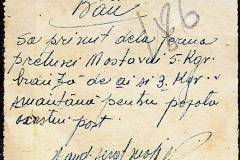 Bău
186
Sa primit dela ferma
preturei Mostovoi 5. Kgr.
brânză de oi si 3. Kgr.
smântână pentru popota
acestui post.